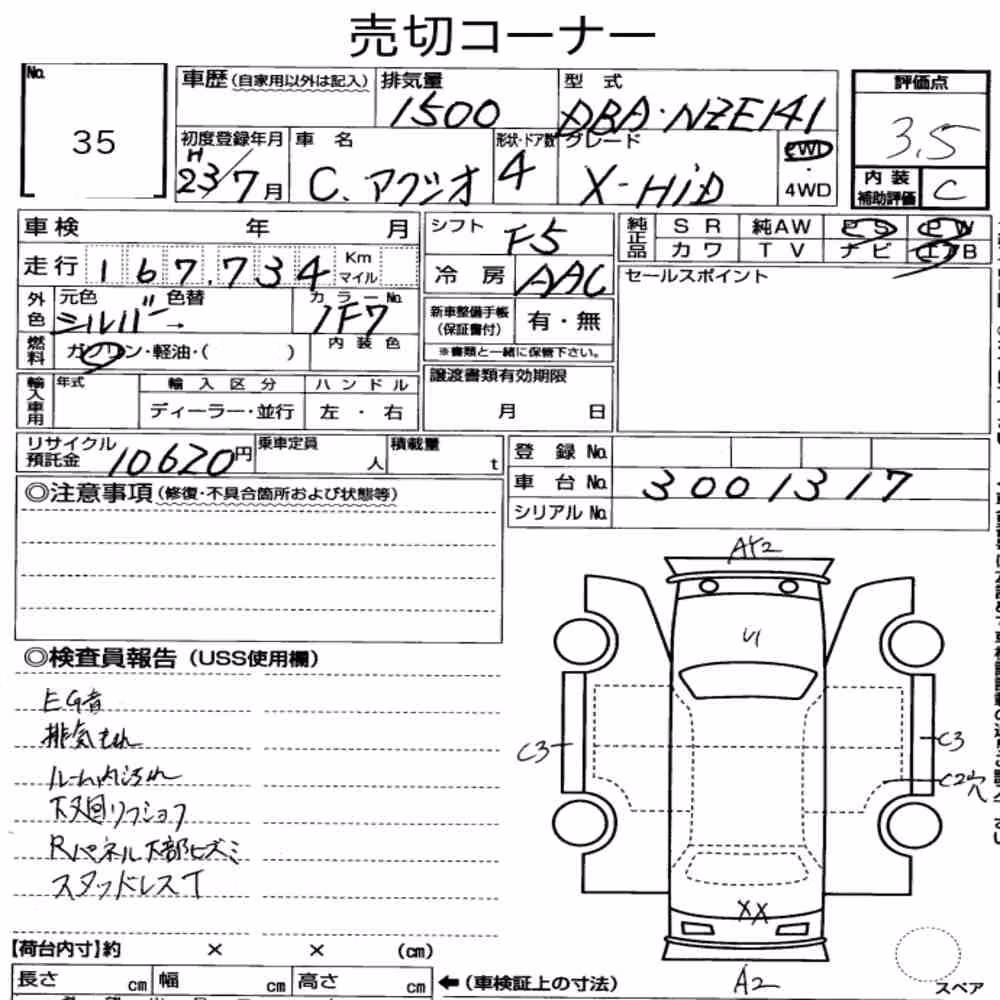 売切コーナー
No. 35
車歴(自家用以外は記入) 排気量 1500 型式 DBA・NZE141 評価点 3.5
初度登録年月 H23/7月 車名 C.アクシオ 形状・ドア数 4 グレード X-HiD 2WD・4WD 内装補助評価 C
車検 年 月 シフト F5 純正品 SR 純AW PS PW
走行 167,734 Km マイル 冷房 AAC カワ TV ナビ エアB
外色 元色 シルバー → 色替 カラーNo. 1F7 新車整備手帳(保証書付) 有・無 セールスポイント
燃料 ガソリン・軽油・( ) 内装色 ※書類と一緒に保管下さい。
輸入車用 年式 輸入区分 ハンドル 譲渡書類有効期限
ディーラー・並行 左・右 月 日
リサイクル預託金 10620円 乗車定員 人 積載量 t 登録No.
車台No. 3001317
シリアルNo.
◎注意事項(修復・不具合箇所および状態等)
A
◎検査員報告(USS使用欄)
EG音
排気もれ
ルーム内汚れ
下廻リフショク
Rパネル下部ヒズミ
スタッドレスT
C3
C3
C2穴
XX
A2
【荷台内寸】約 × × (cm)
長さ cm 幅 cm 高さ cm ←(車検証上の寸法)
スペア